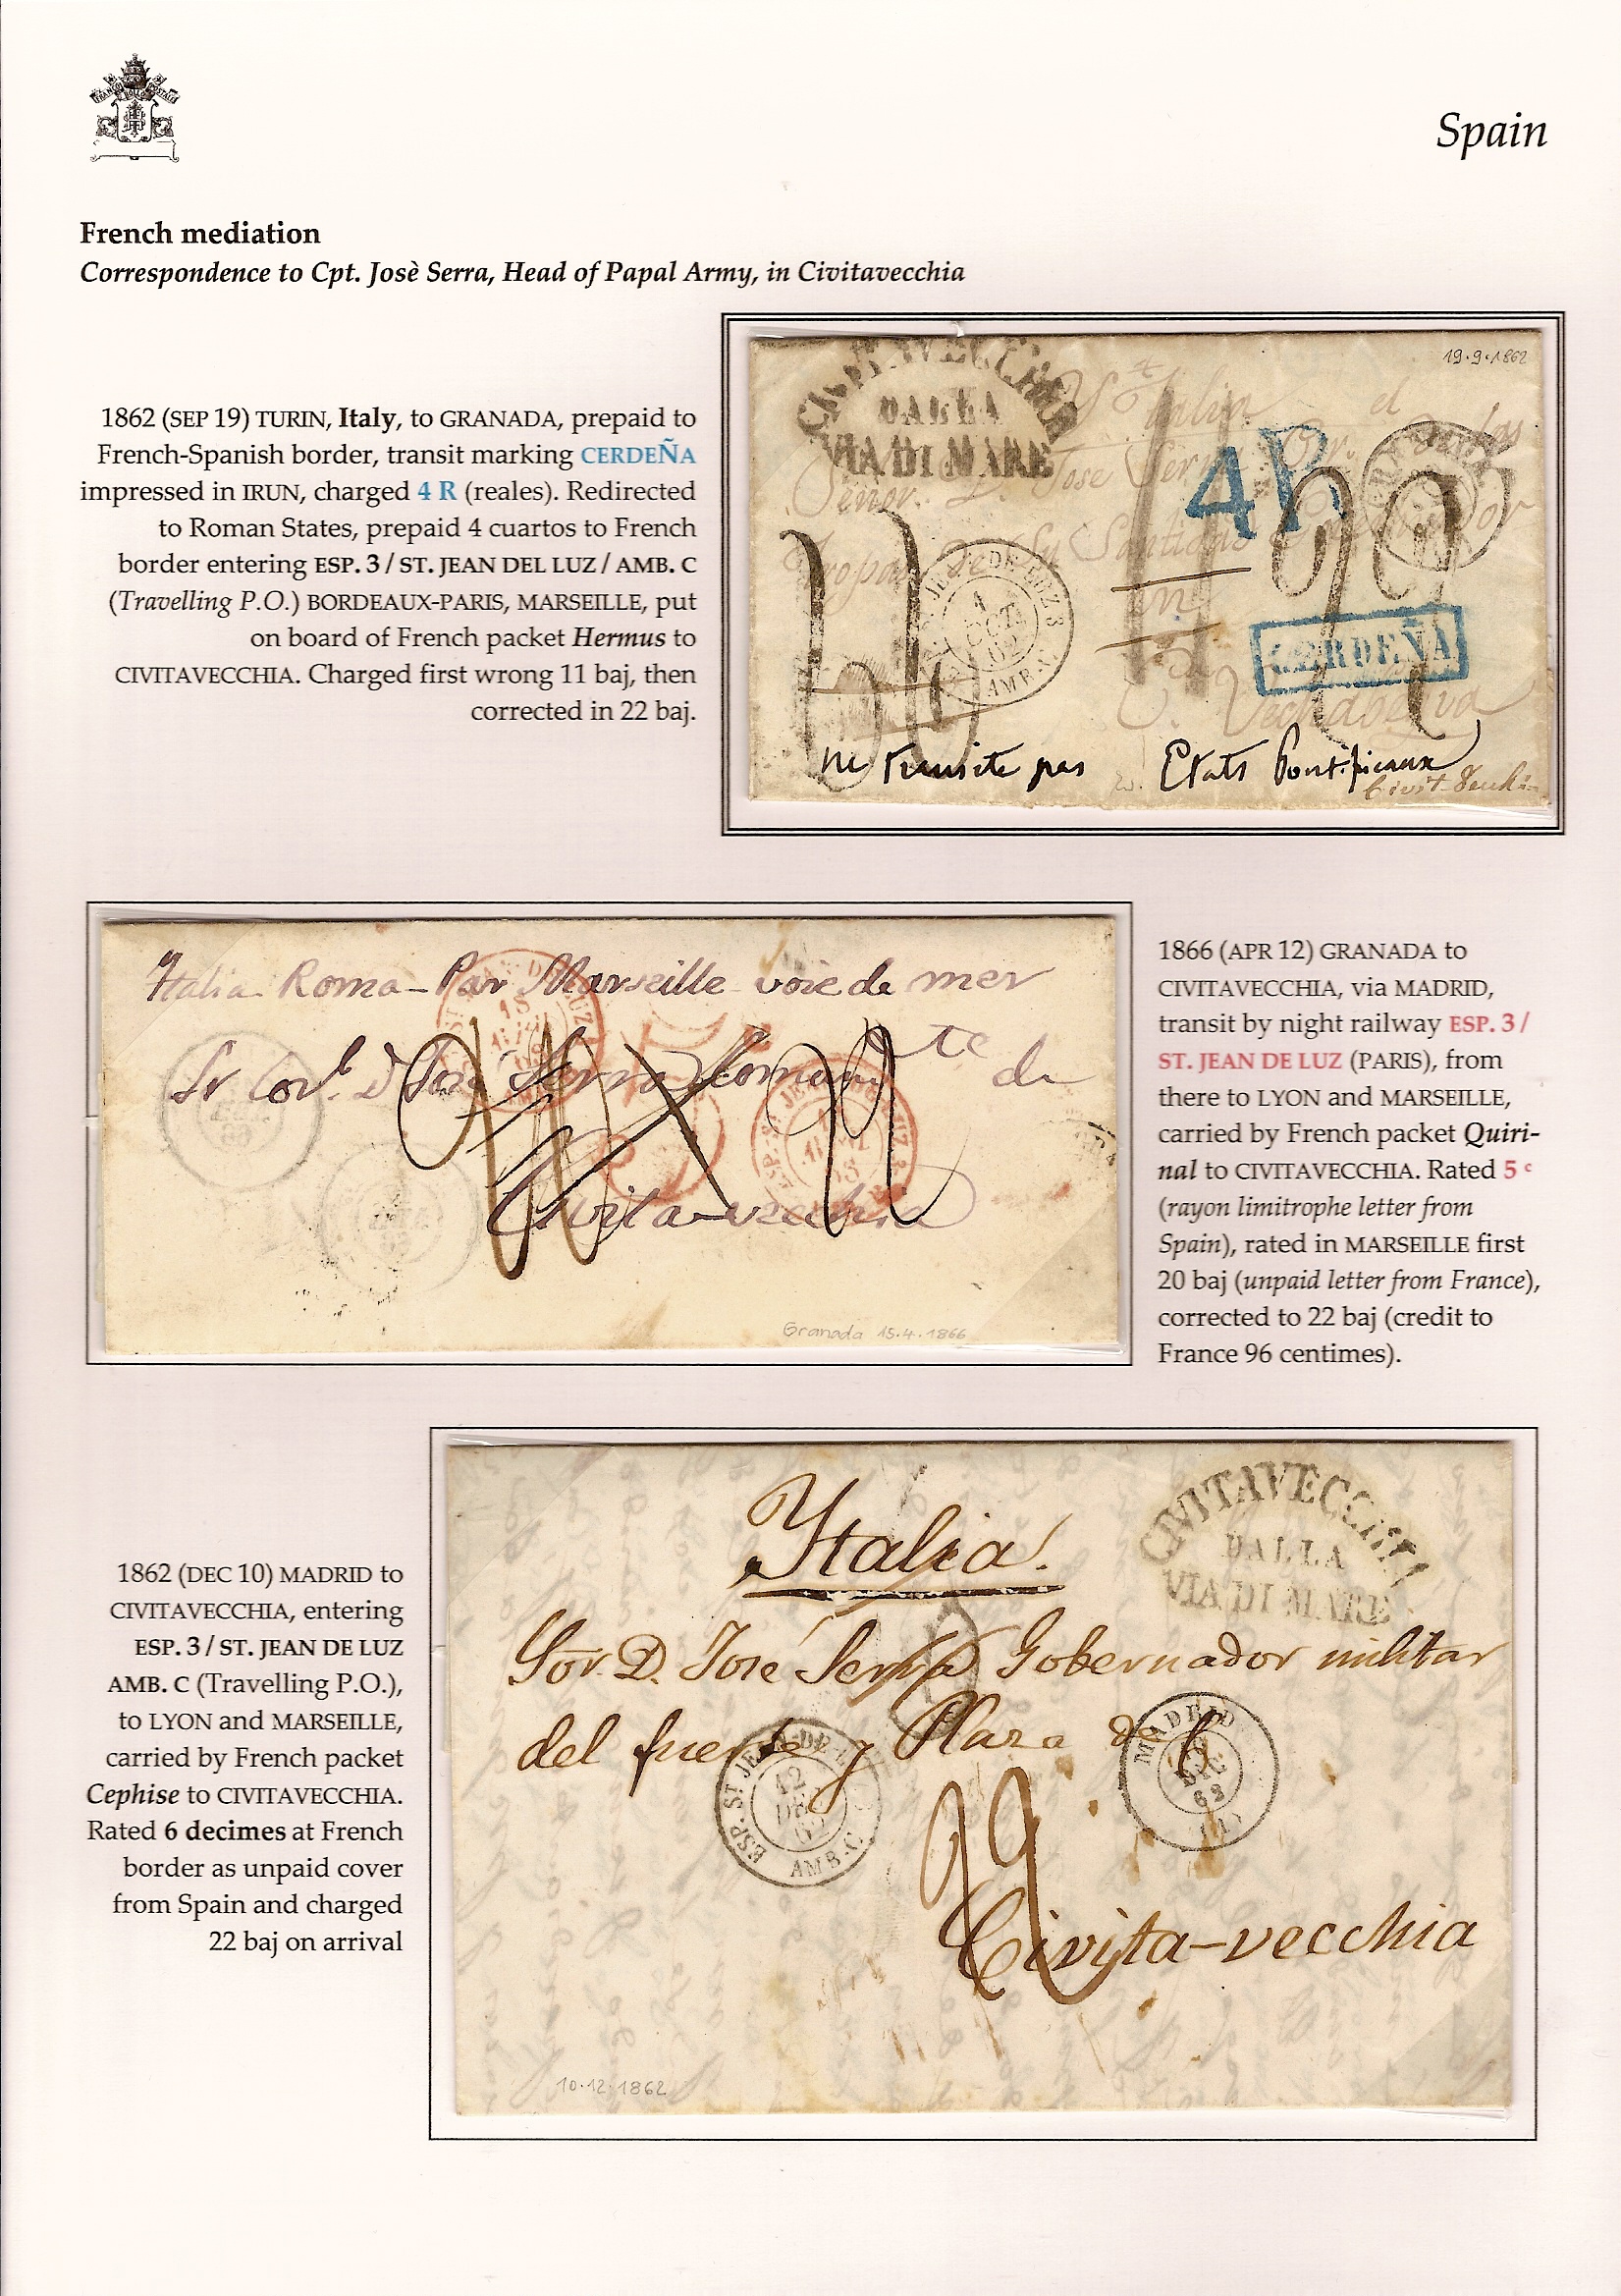 Spain
French mediation
Correspondence to Cpt. Josè Serra, Head of Papal Army, in Civitavecchia
1862 (SEP 19) TURIN, Italy, to GRANADA, prepaid to
French-Spanish border, transit marking CERDEÑA
impressed in IRUN, charged 4 R (reales). Redirected
to Roman States, prepaid 4 cuartos to French
border entering ESP. 3 / ST. JEAN DEL LUZ / AMB. C
(Travelling P.O.) BORDEAUX-PARIS, MARSEILLE, put
on board of French packet Hermus to
CIVITAVECCHIA. Charged first wrong 11 baj, then
corrected in 22 baj.
19·9·1862
CIVITAVECCHIA
DALLA
VIA DI MARE
4R
CERDEÑA
1
OCT.
62
AMB. C
ne transite pas Etats Pontificaux
1866 (APR 12) GRANADA to
CIVITAVECCHIA, via MADRID,
transit by night railway ESP. 3 /
ST. JEAN DE LUZ (PARIS), from
there to LYON and MARSEILLE,
carried by French packet Quiri-
nal to CIVITAVECCHIA. Rated 5 c
(rayon limitrophe letter from
Spain), rated in MARSEILLE first
20 baj (unpaid letter from France),
corrected to 22 baj (credit to
France 96 centimes).
Italia Roma - Par Marseille voie de mer
Sr Corl. D José Serra Comandte de
Civita-vecchia
Granada 15.4.1866
1862 (DEC 10) MADRID to
CIVITAVECCHIA, entering
ESP. 3 / ST. JEAN DE LUZ
AMB. C (Travelling P.O.),
to LYON and MARSEILLE,
carried by French packet
Cephise to CIVITAVECCHIA.
Rated 6 decimes at French
border as unpaid cover
from Spain and charged
22 baj on arrival
CIVITAVECCHIA
DALLA
VIA DI MARE
Italia.
Sor. D. José Serra Gobernador militar
del fuerte y Plaza de
ESP. ST. JEAN DE LUZ
12
DEC
62
AMB. C
MADRID
DIC
62
(1)
22
Civita-vecchia
10·12·1862